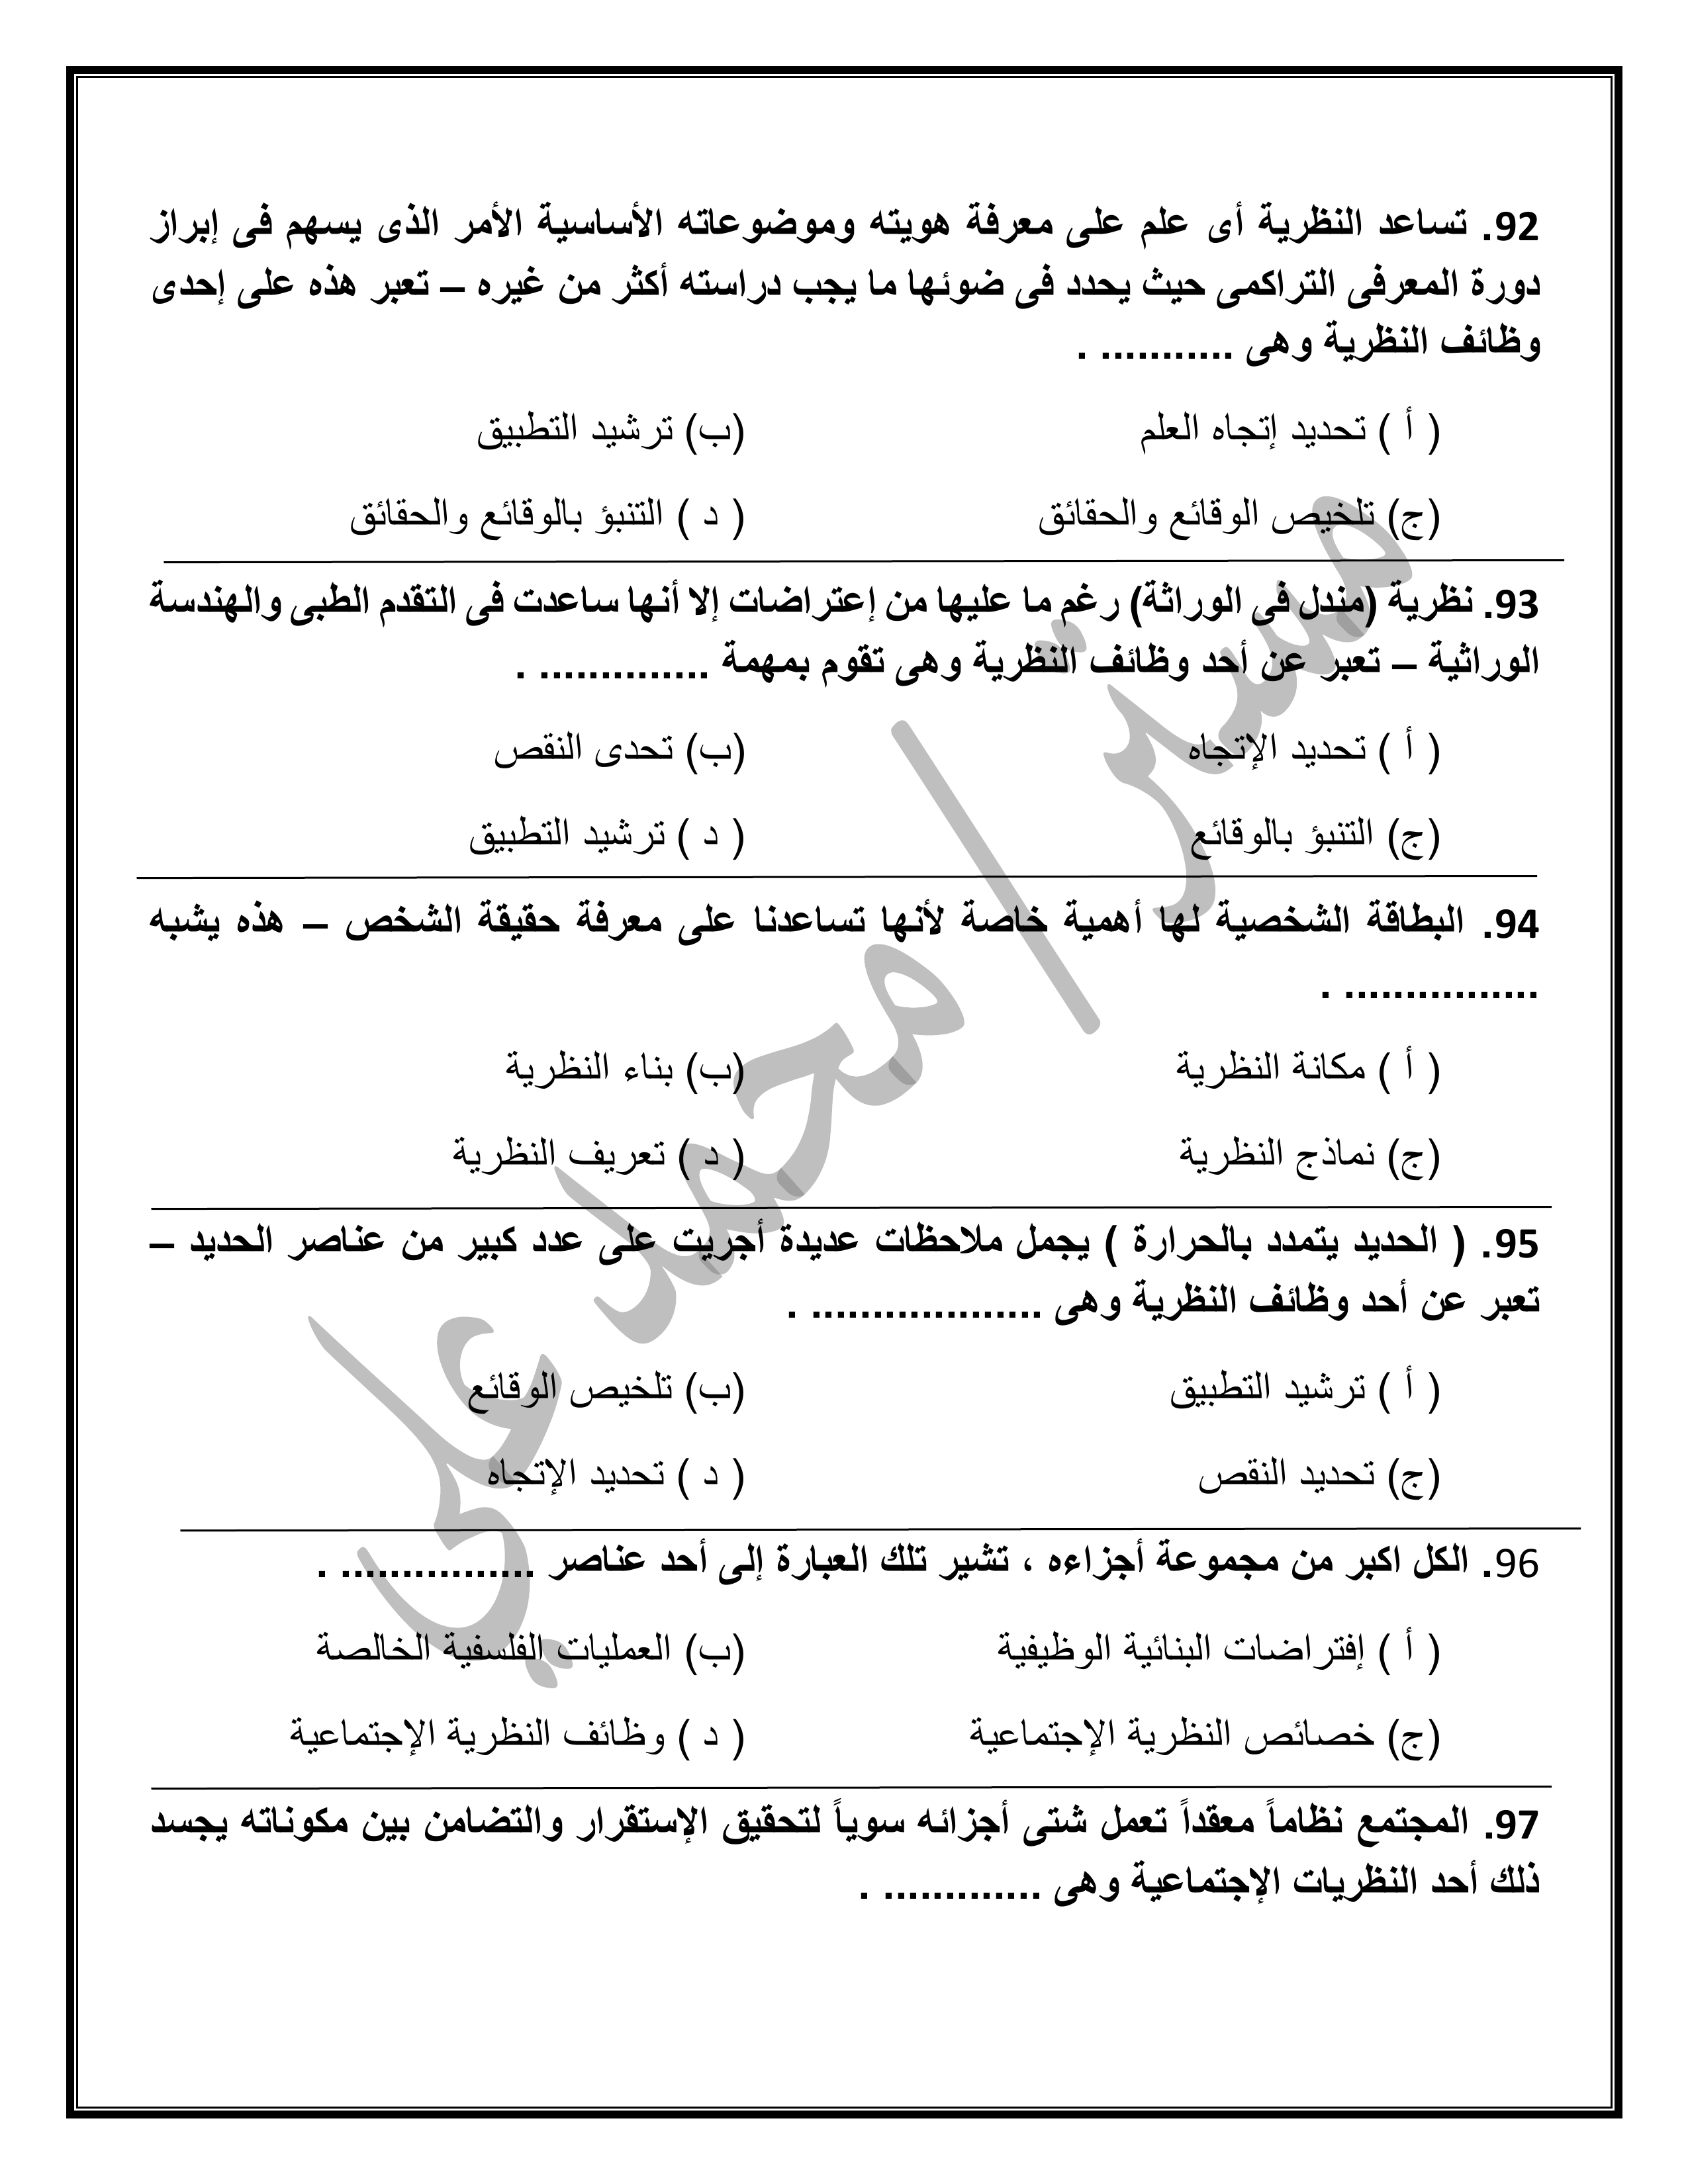 92. تساعد النظرية أى علم على معرفة هويته وموضوعاته الأساسية الأمر الذى يسهم فى إبراز
دورة المعرفى التراكمى حيث يحدد فى ضوئها ما يجب دراسته أكثر من غيره – تعبر هذه على إحدى
وظائف النظرية وهى ........... .
( أ ) تحديد إتجاه العلم (ب) ترشيد التطبيق
(ج) تلخيص الوقائع والحقائق ( د ) التنبؤ بالوقائع والحقائق
93. نظرية (مندل فى الوراثة) رغم ما عليها من إعتراضات إلا أنها ساعدت فى التقدم الطبى والهندسة
الوراثية – تعبر عن أحد وظائف النظرية وهى تقوم بمهمة .............. .
( أ ) تحديد الإتجاه (ب) تحدى النقص
(ج) التنبؤ بالوقائع ( د ) ترشيد التطبيق
94. البطاقة الشخصية لها أهمية خاصة لأنها تساعدنا على معرفة حقيقة الشخص – هذه يشبه
................ .
( أ ) مكانة النظرية (ب) بناء النظرية
(ج) نماذج النظرية ( د ) تعريف النظرية
95. ( الحديد يتمدد بالحرارة ) يجمل ملاحظات عديدة أجريت على عدد كبير من عناصر الحديد –
تعبر عن أحد وظائف النظرية وهى ................... .
( أ ) ترشيد التطبيق (ب) تلخيص الوقائع
(ج) تحديد النقص ( د ) تحديد الإتجاه
96. الكل اكبر من مجموعة أجزاءه ، تشير تلك العبارة إلى أحد عناصر ................ .
( أ ) إفتراضات البنائية الوظيفية (ب) العمليات الفلسفية الخالصة
(ج) خصائص النظرية الإجتماعية ( د ) وظائف النظرية الإجتماعية
97. المجتمع نظاماً معقداً تعمل شتى أجزائه سوياً لتحقيق الإستقرار والتضامن بين مكوناته يجسد
ذلك أحد النظريات الإجتماعية وهى ............. .
مستر/محمد علي